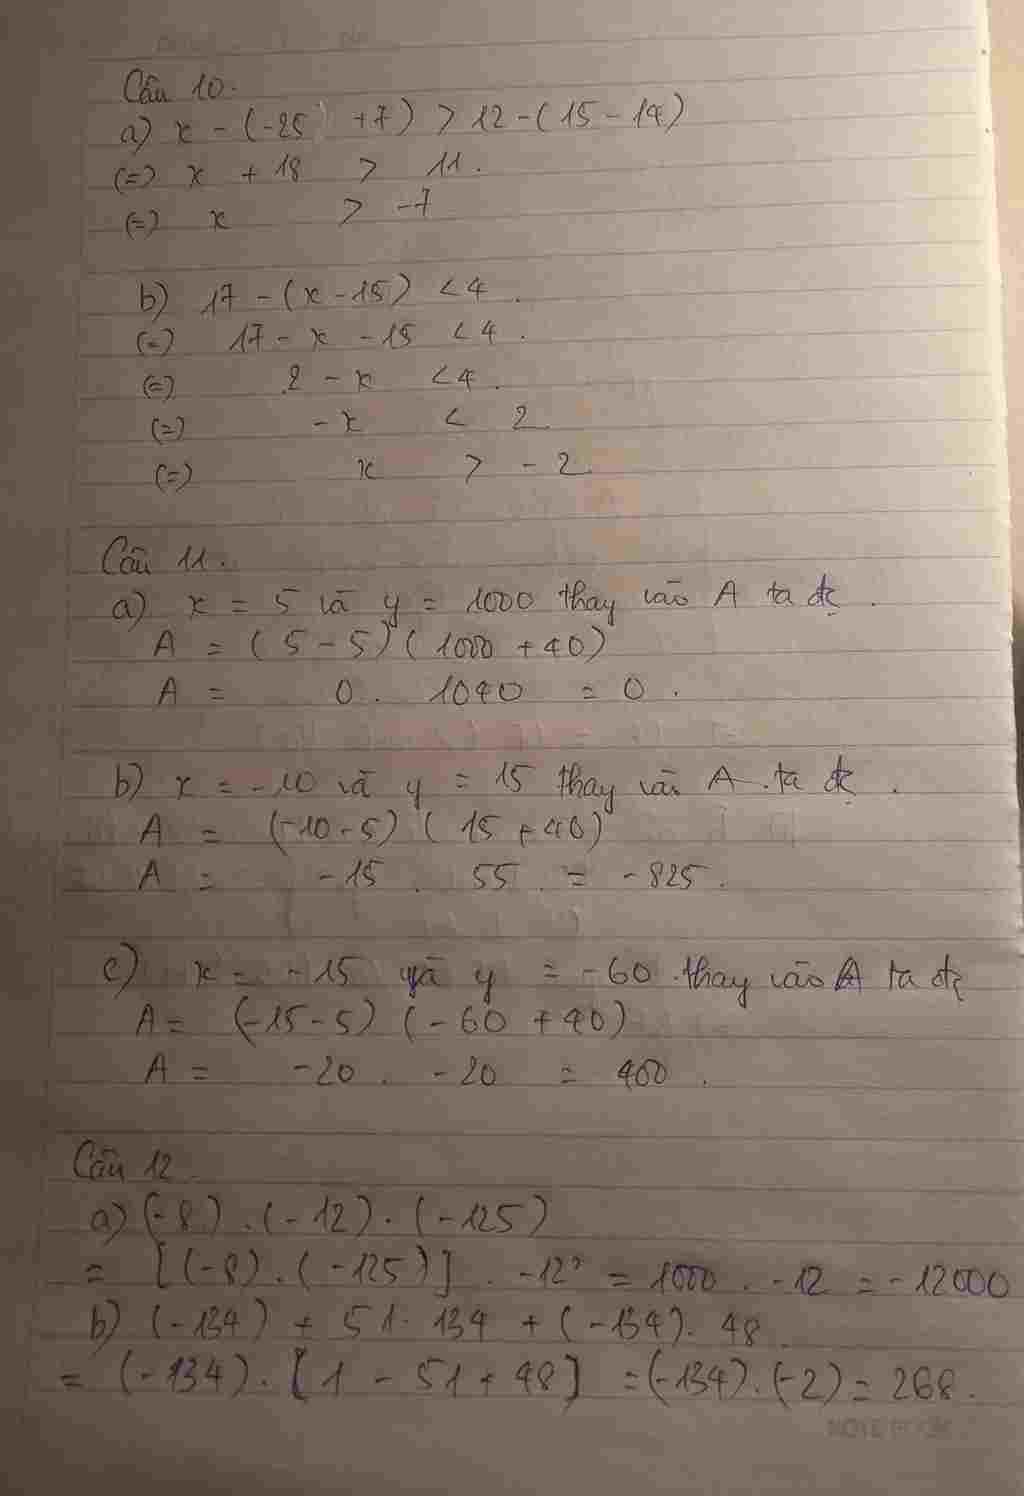 Câu 10.
a) x - (-25 + 7) > 12 - (15 - 14)
(=) x + 18 > 11.
(=) x > -7
b) 17 - (x - 15) < 4.
(=) 17 - x - 15 < 4.
(=) 2 - x < 4.
(=) -x < 2
(=) x > -2.
Câu 11.
a) x = 5 và y = 1000 thay vào A ta đc.
A = (5 - 5) (1000 + 40)
A = 0. 1040 = 0.
b) x = -10 và y = 15 thay vào A ta đc.
A = (-10 - 5) (15 + 40)
A = -15 . 55 = -825.
c) x = -15 và y = -60 thay vào A ta đc
A = (-15 - 5) (-60 + 40)
A = -20 . -20 = 400.
Câu 12.
a) (-8) . (-12) . (-125)
= [(-8) . (-125)] . -12 = 1000 . -12 = -12000
b) (-134) + 51. 134 + (-134). 48.
= (-134) . [1 - 51 + 48] = (-134) . (-2) = 268.